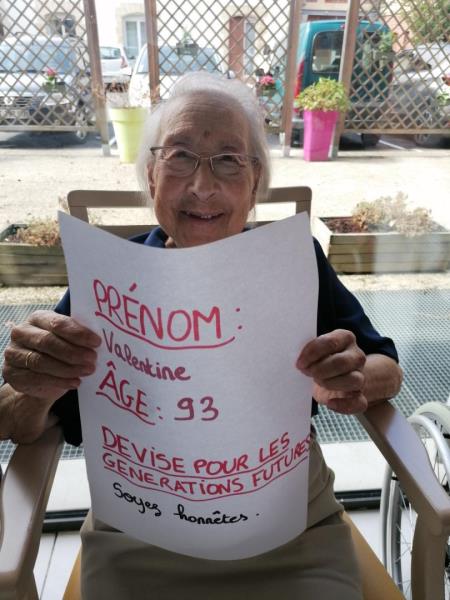 PRÉNOM :
Valentine
ÂGE : 93
DEVISE POUR LES
GENERATIONS FUTURES
Soyez honnêtes.